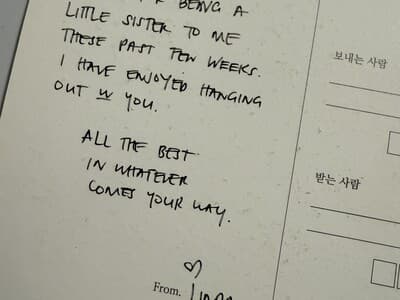 BEING A
LITTLE SISTER TO ME
THESE PAST FEW WEEKS.
I HAVE ENJOYED HANGING
OUT W YOU.
ALL THE BEST
IN WHATEVER
COMES YOUR WAY.
From.
보내는 사람
받는 사람